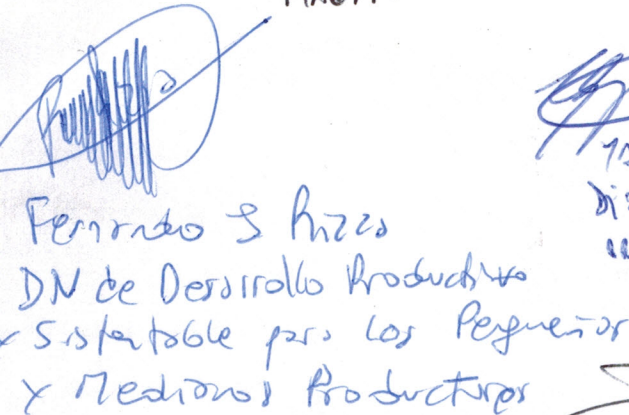 Fernando S Rizzo
DN de Desarrollo Productivo
y Sistentable para los Pequeños
y Medianos Productores
Di